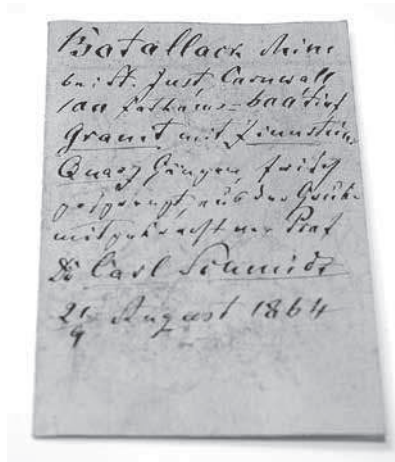 Botallack Mine
bei St. Just Cornwall
100 Fathoms = 600' tief
Granit mit Zinnstein
Quarz Gängen, frisch
gesprengt, aus der Grube
mitgebracht von Prof
Dr Carl Schmidt
21 August 1864
9